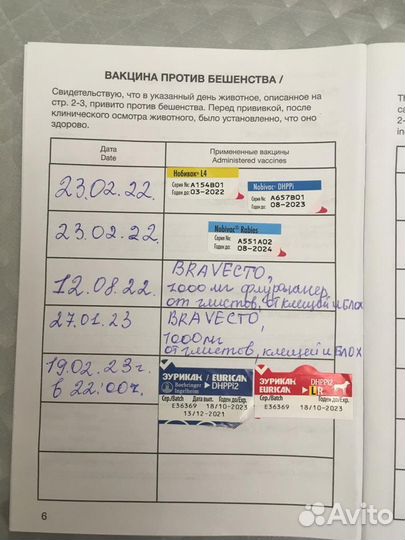 ВАКЦИНА ПРОТИВ БЕШЕНСТВА /
Свидетельствую, что в указанный день животное, описанное на
стр. 2-3, привито против бешенства. Перед прививкой, после
клинического осмотра животного, было установленно, что оно
здорово.
Дата
Date
Примененные вакцины
Administered vaccines
23.02.22.
Нобивак L4
Серия № A154B01
Годен до 03-2022
Nobivac DHPPi
Серия № A657B01
Годен до 08-2023
23.02.22.
Nobivac Rabies
Серия № A551A02
Годен до 08-2024
12.08.22.
BRAVECTO,
1000 мг флураланер
от глистов, от клещей и блох
27.01.23
BRAVECTO,
1000мг
от глистов, клещей и БЛОХ
19.02.23г.
в 22:00ч.
ЭУРИКАН / EURICAN
Boehringer Ingelheim
DHPPI2
Сер./Batch Дата вып. Годен до/Exp.
E36369 18/10-2023
13/12-2021
ЭУРИКАН
EURICAN
DHPPI2
LR
Сер./Batch Годен до/Exp.
E36369 18/10/2023
6
Avito